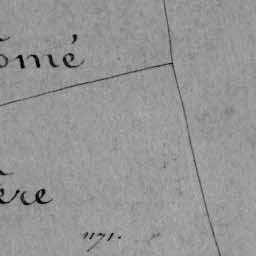 omé
ère
1171.